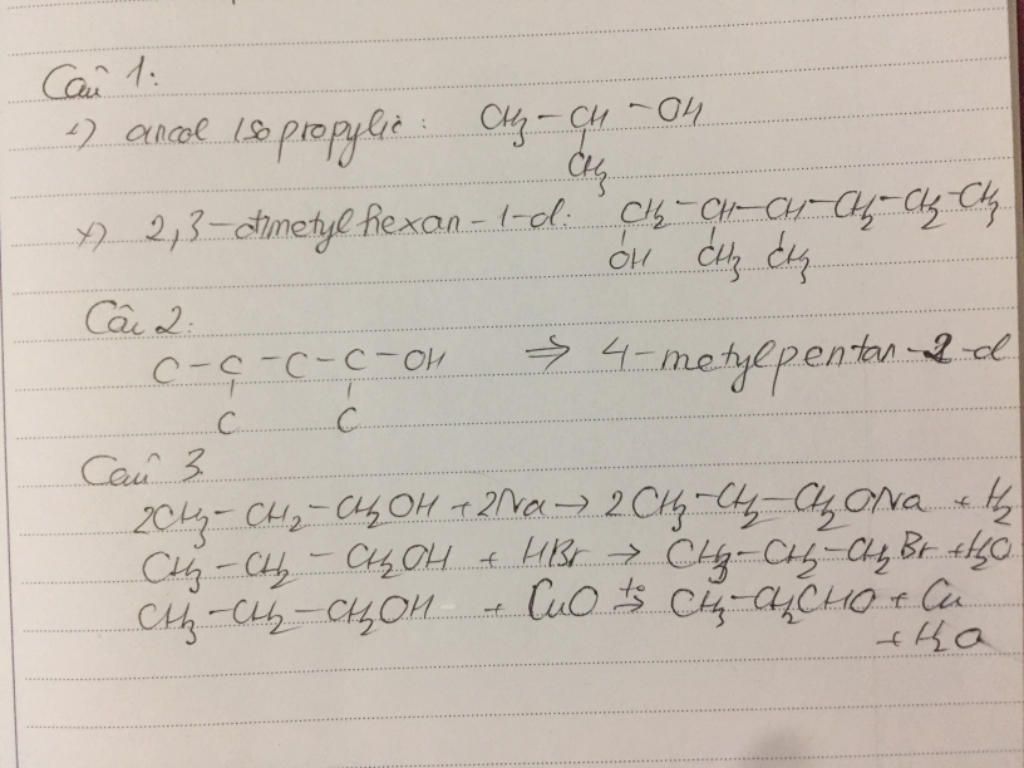 Câu 1:
+) ancol isopropylic: CH3 – CH – OH
CH3
+) 2,3-đimetylhexan-1-ol: CH2 – CH – CH – CH2 – CH2 – CH3
OH CH3 CH3
Câu 2:
C – C – C – C – OH ⇒ 4-metylpentan-2-ol
C C
Câu 3.
2CH3 – CH2 – CH2OH + 2Na → 2CH3 – CH2 – CH2ONa + H2
CH3 – CH2 – CH2OH + HBr → CH3 – CH2 – CH2Br + H2O
CH3 – CH2 – CH2OH + CuO t° → CH3 – CH2CHO + Cu
+ H2O